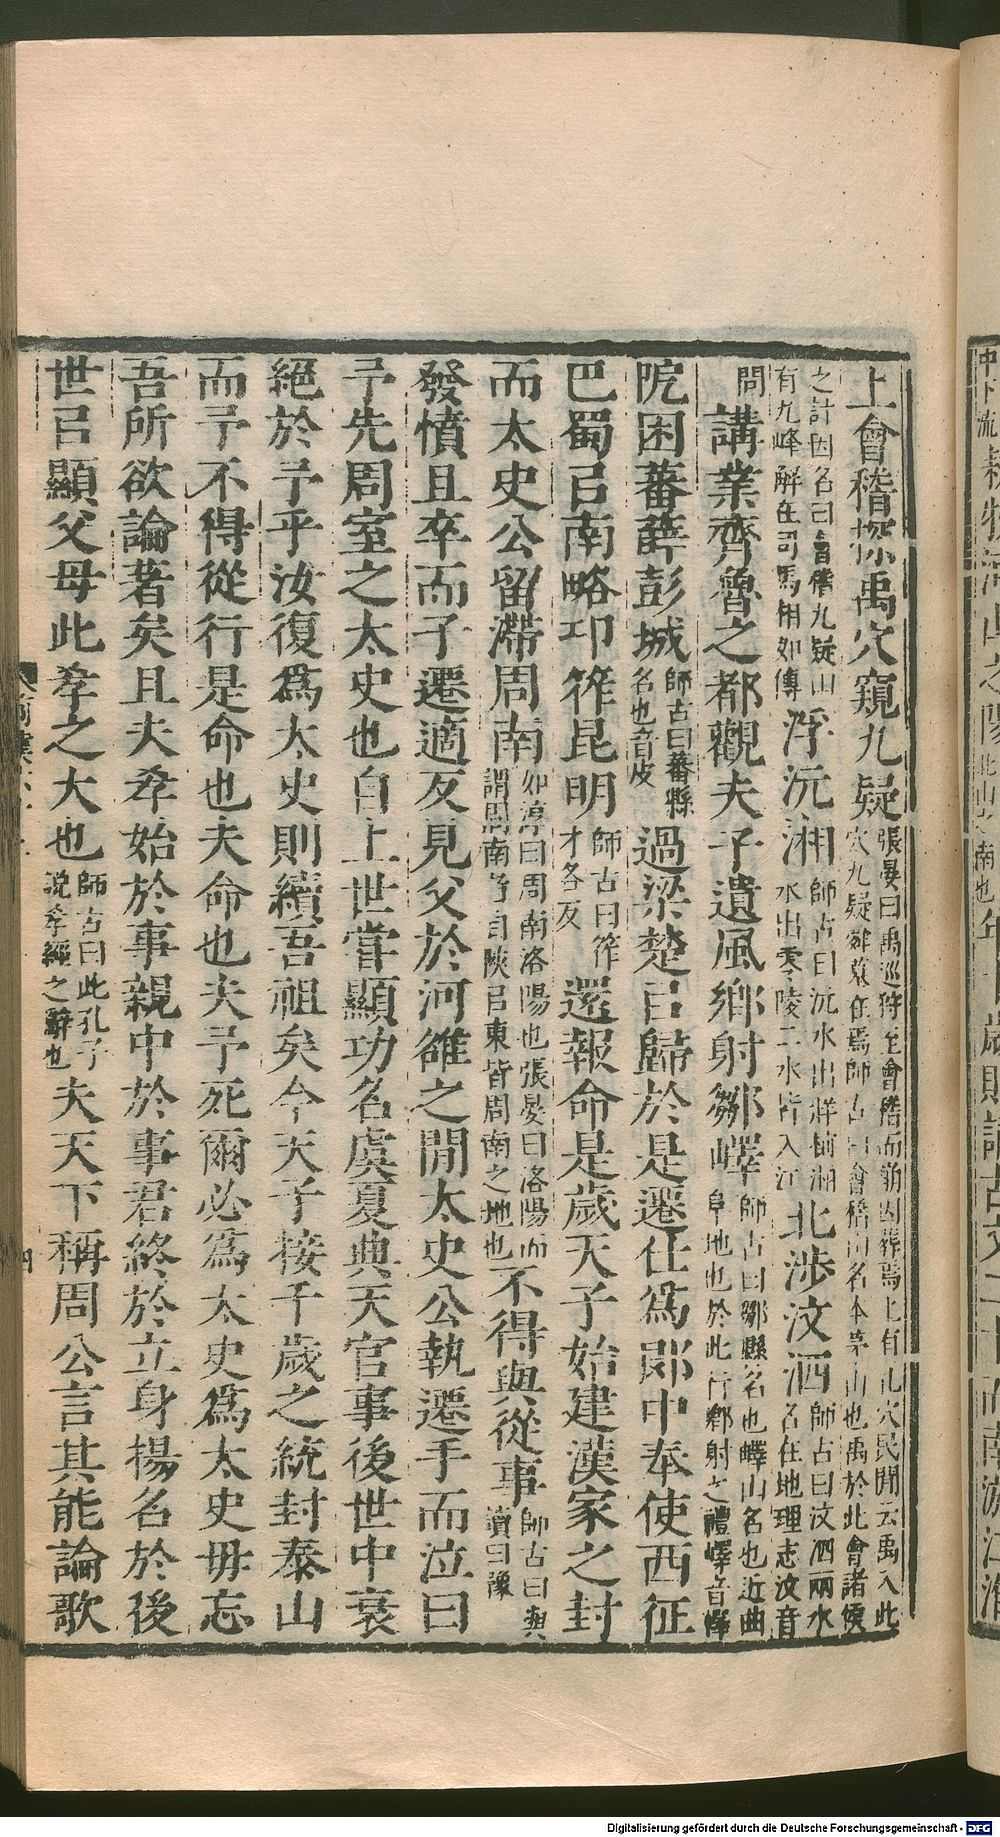 上會稽探禹穴窺九疑張晏曰禹巡狩至會稽而崩因葬焉上有孔穴民閒云禹入此穴九疑舜墓在焉師古曰會稽山名本茅山也禹於此會諸侯
之計因名曰會稽九疑山有九峰解在司馬相如傳浮沅湘師古曰沅水出牂柯湘水出零陵二水皆入江北涉汶泗師古曰汶泗兩水名在地理志汶音
問講業齊魯之都觀夫子遺風鄉射鄒嶧師古曰鄒縣名也嶧山名也近曲阜地也於此行鄉射之禮嶧音懌
阸困蕃薛彭城師古曰蕃縣名也音皮過梁楚㠯歸於是遷仕爲郎中奉使西征
巴蜀㠯南略邛筰昆明師古曰筰才各反還報命是歲天子始建漢家之封
而太史公留滯周南如淳曰周南洛陽也張晏曰洛陽而謂周南者自陝㠯東皆周南之地也不得與從事師古曰與讀曰豫
發憤且卒而子遷適反見父於河雒之閒太史公執遷手而泣曰
予先周室之太史也自上世嘗顯功名虞夏典天官事後世中衰
絕於予乎汝復爲太史則續吾祖矣今天子接千歲之統封泰山
而予不得從行是命也夫命也夫予死爾必爲太史爲太史毋忘
吾所欲論著矣且夫孝始於事親中於事君終於立身揚名於後
世㠯顯父母此孝之大也師古曰此孔子說孝經之辭也夫天下稱周公言其能論歌
四
Digitalisierung gefördert durch die Deutsche Forschungsgemeinschaft - DFG